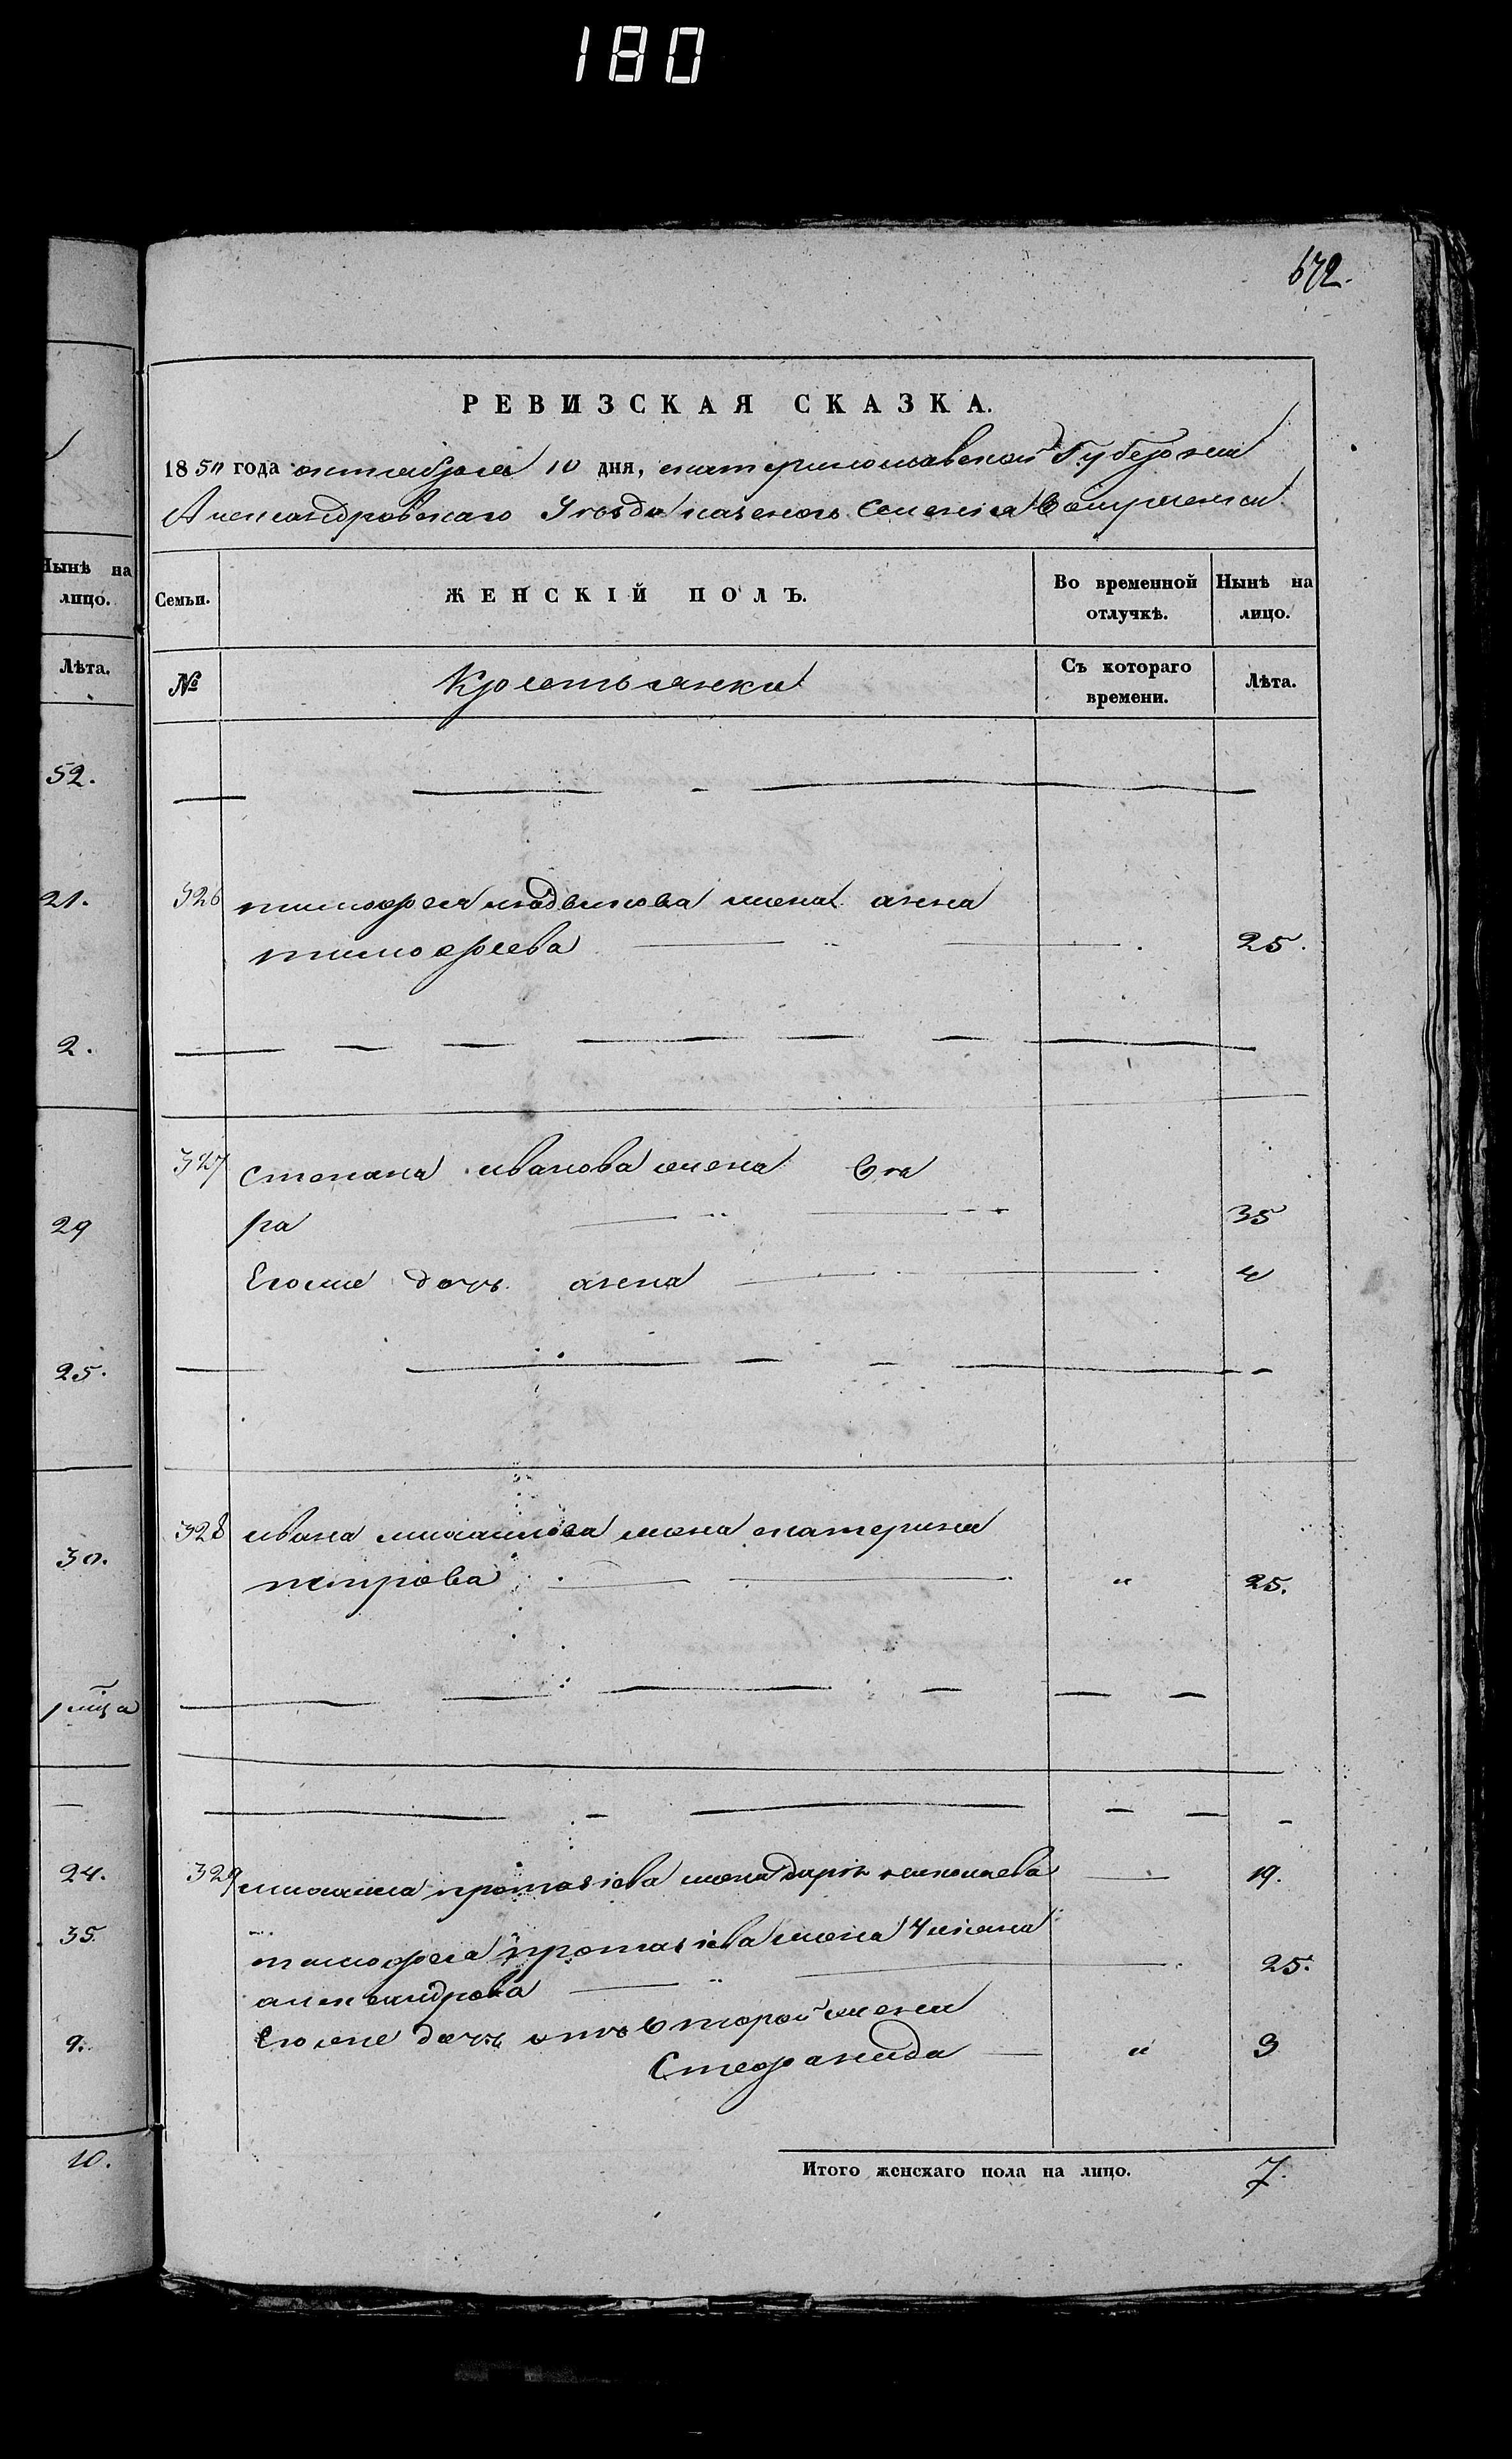 180
672.
РЕВИЗСКАЯ СКАЗКА.
1850 года октября 10 дня, екатеринославской Губернии
Александровскаго Уезда казеного Селения
Нынѣ на лицо.
Семьи.
ЖЕНСКІЙ ПОЛЪ.
Во временной отлучкѣ.
Нынѣ на лицо.
Лѣта.
№
Крестьянки
Съ котораго времени.
Лѣта.
52.
21.
326 тимофея жена анна
тимофеева 25.
2.
327 степана иванова жена
ра 35
29
Егоже дочь анна 4
25.
328 ивана михаилова жена екатерина
30.
петрова " 25.
24.
329 михаила протасіева жена дарія николаева 19.
35.
тимофея протасіева жена Улиана
александрова 25.
Егоже дочь отъ второй жены
9.
Стефанида " 3
10.
Итого женскаго пола на лицо. 7.